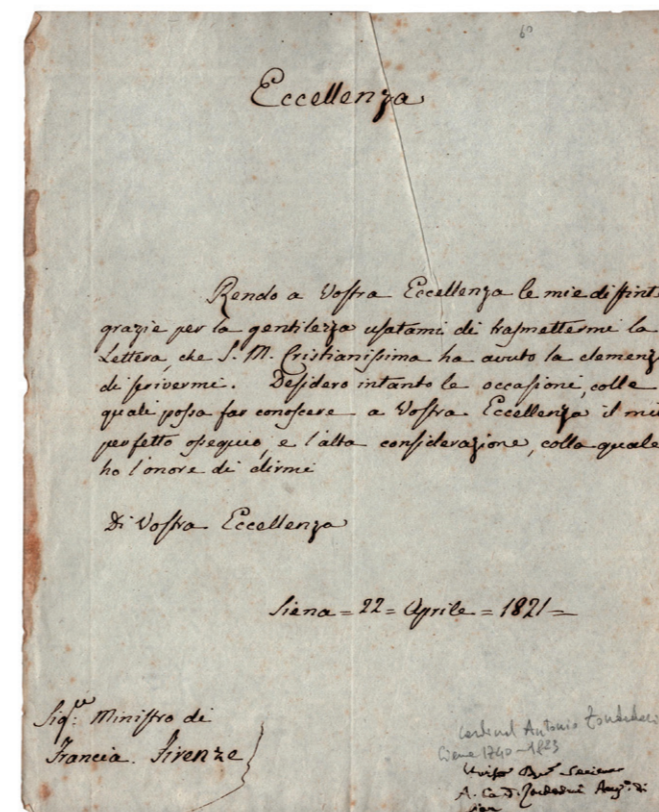 6º
Eccellenza
Rendo a Vostra Eccellenza le mie distint
grazie per la gentilezza usatami di trasmettermi la
Lettera, che S. M. Cristianissima ha avuto la clemenz
di scrivermi. Desidero intanto le occasioni, colle
quali possa far conoscere a Vostra Eccellenza il mi
perfetto ossequio, e l'alta considerazione, colla quale
ho l'onore di dirmi
Di Vostra Eccellenza
Siena = 22 = Aprile = 1821 =
Sigre: Ministro di
Francia. Firenze
Cardinal Antonio
Siena 1740-1823
A. Card. di